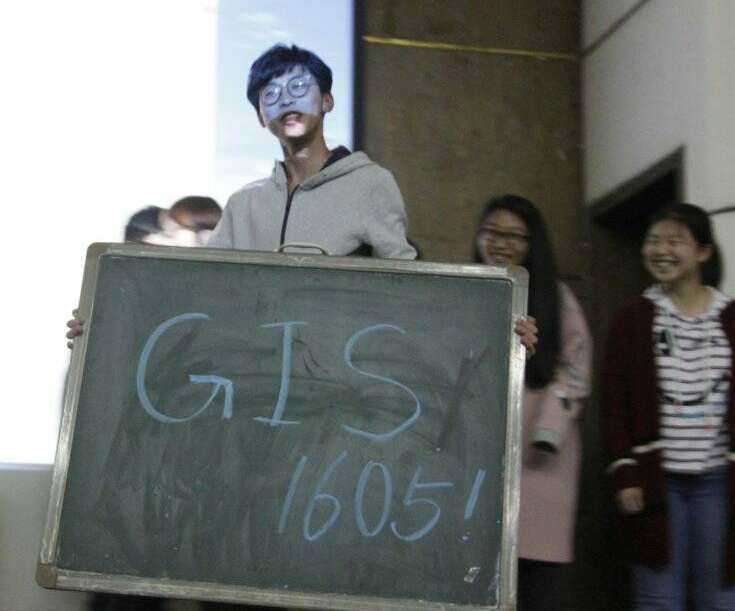 GIS
1605!